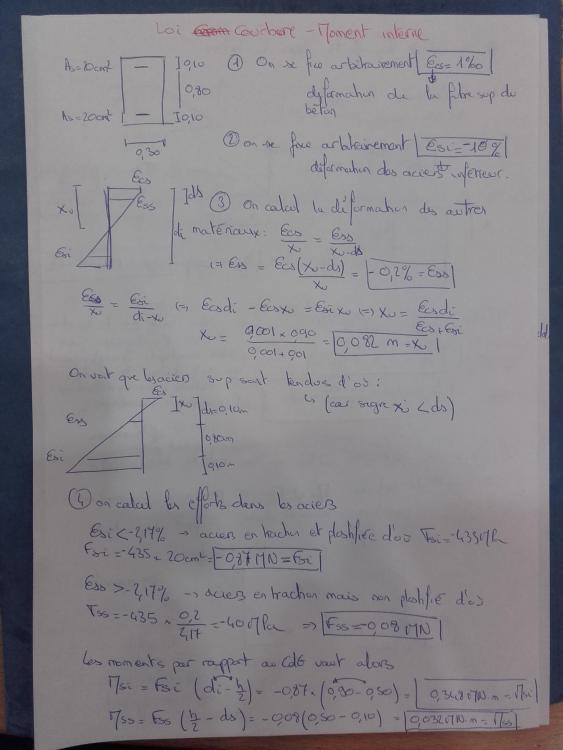 Loi Courbure - Moment interne
As=10cm² 0,10
0,80
As=20cm² 0,10
0,30
① On se fixe arbitrairement εcs = 1‰
déformation de la fibre sup du
béton
② on se fixe arbitrairement εsi = -10%
déformation des aciers inférieur.
εcs
ds
xu
εss
di
εsi
③ On calcul la déformation des autres
matériaux : εcs/xu = εss/xu-ds
⇔ εss = εcs(xu-ds)/xu = -0,2% = εss
εcs/xu = εsi/di-xu ⇔ εcsdi - εcsxu = εsi xu ⇔ xu = εcsdi/εcs+εsi
xu = 0,001 x 0,90/0,001+0,01 = 0,082 m = xu
On voit que les aciers sup sont tendues d'où :
↳ (car signe xu < ds)
εcs
xu
ds=0,10m
εss
0,80m
εsi
0,10m
④ on calcul les efforts dans les aciers
εsi < -2,17% → aciers en traction et plastifiée d'où σsi = -435MPa
Fsi = -435 x 20cm² = -0,87 MN = Fsi
εss > -2,17% → aciers en traction mais non plastifié d'où
σss = -435 x 0,2/2,17 = -40 MPa ⇒ Fss = -0,08 MN
Les moments par rapport au CdG vaut alors
Msi = Fsi (di - h/2) = -0,87 x (0,90 - 0,50) = 0,348 MN.m = Msi
Mss = Fss (h/2 - ds) = -0,08 (0,50 - 0,10) = 0,032 MN.m = Mss